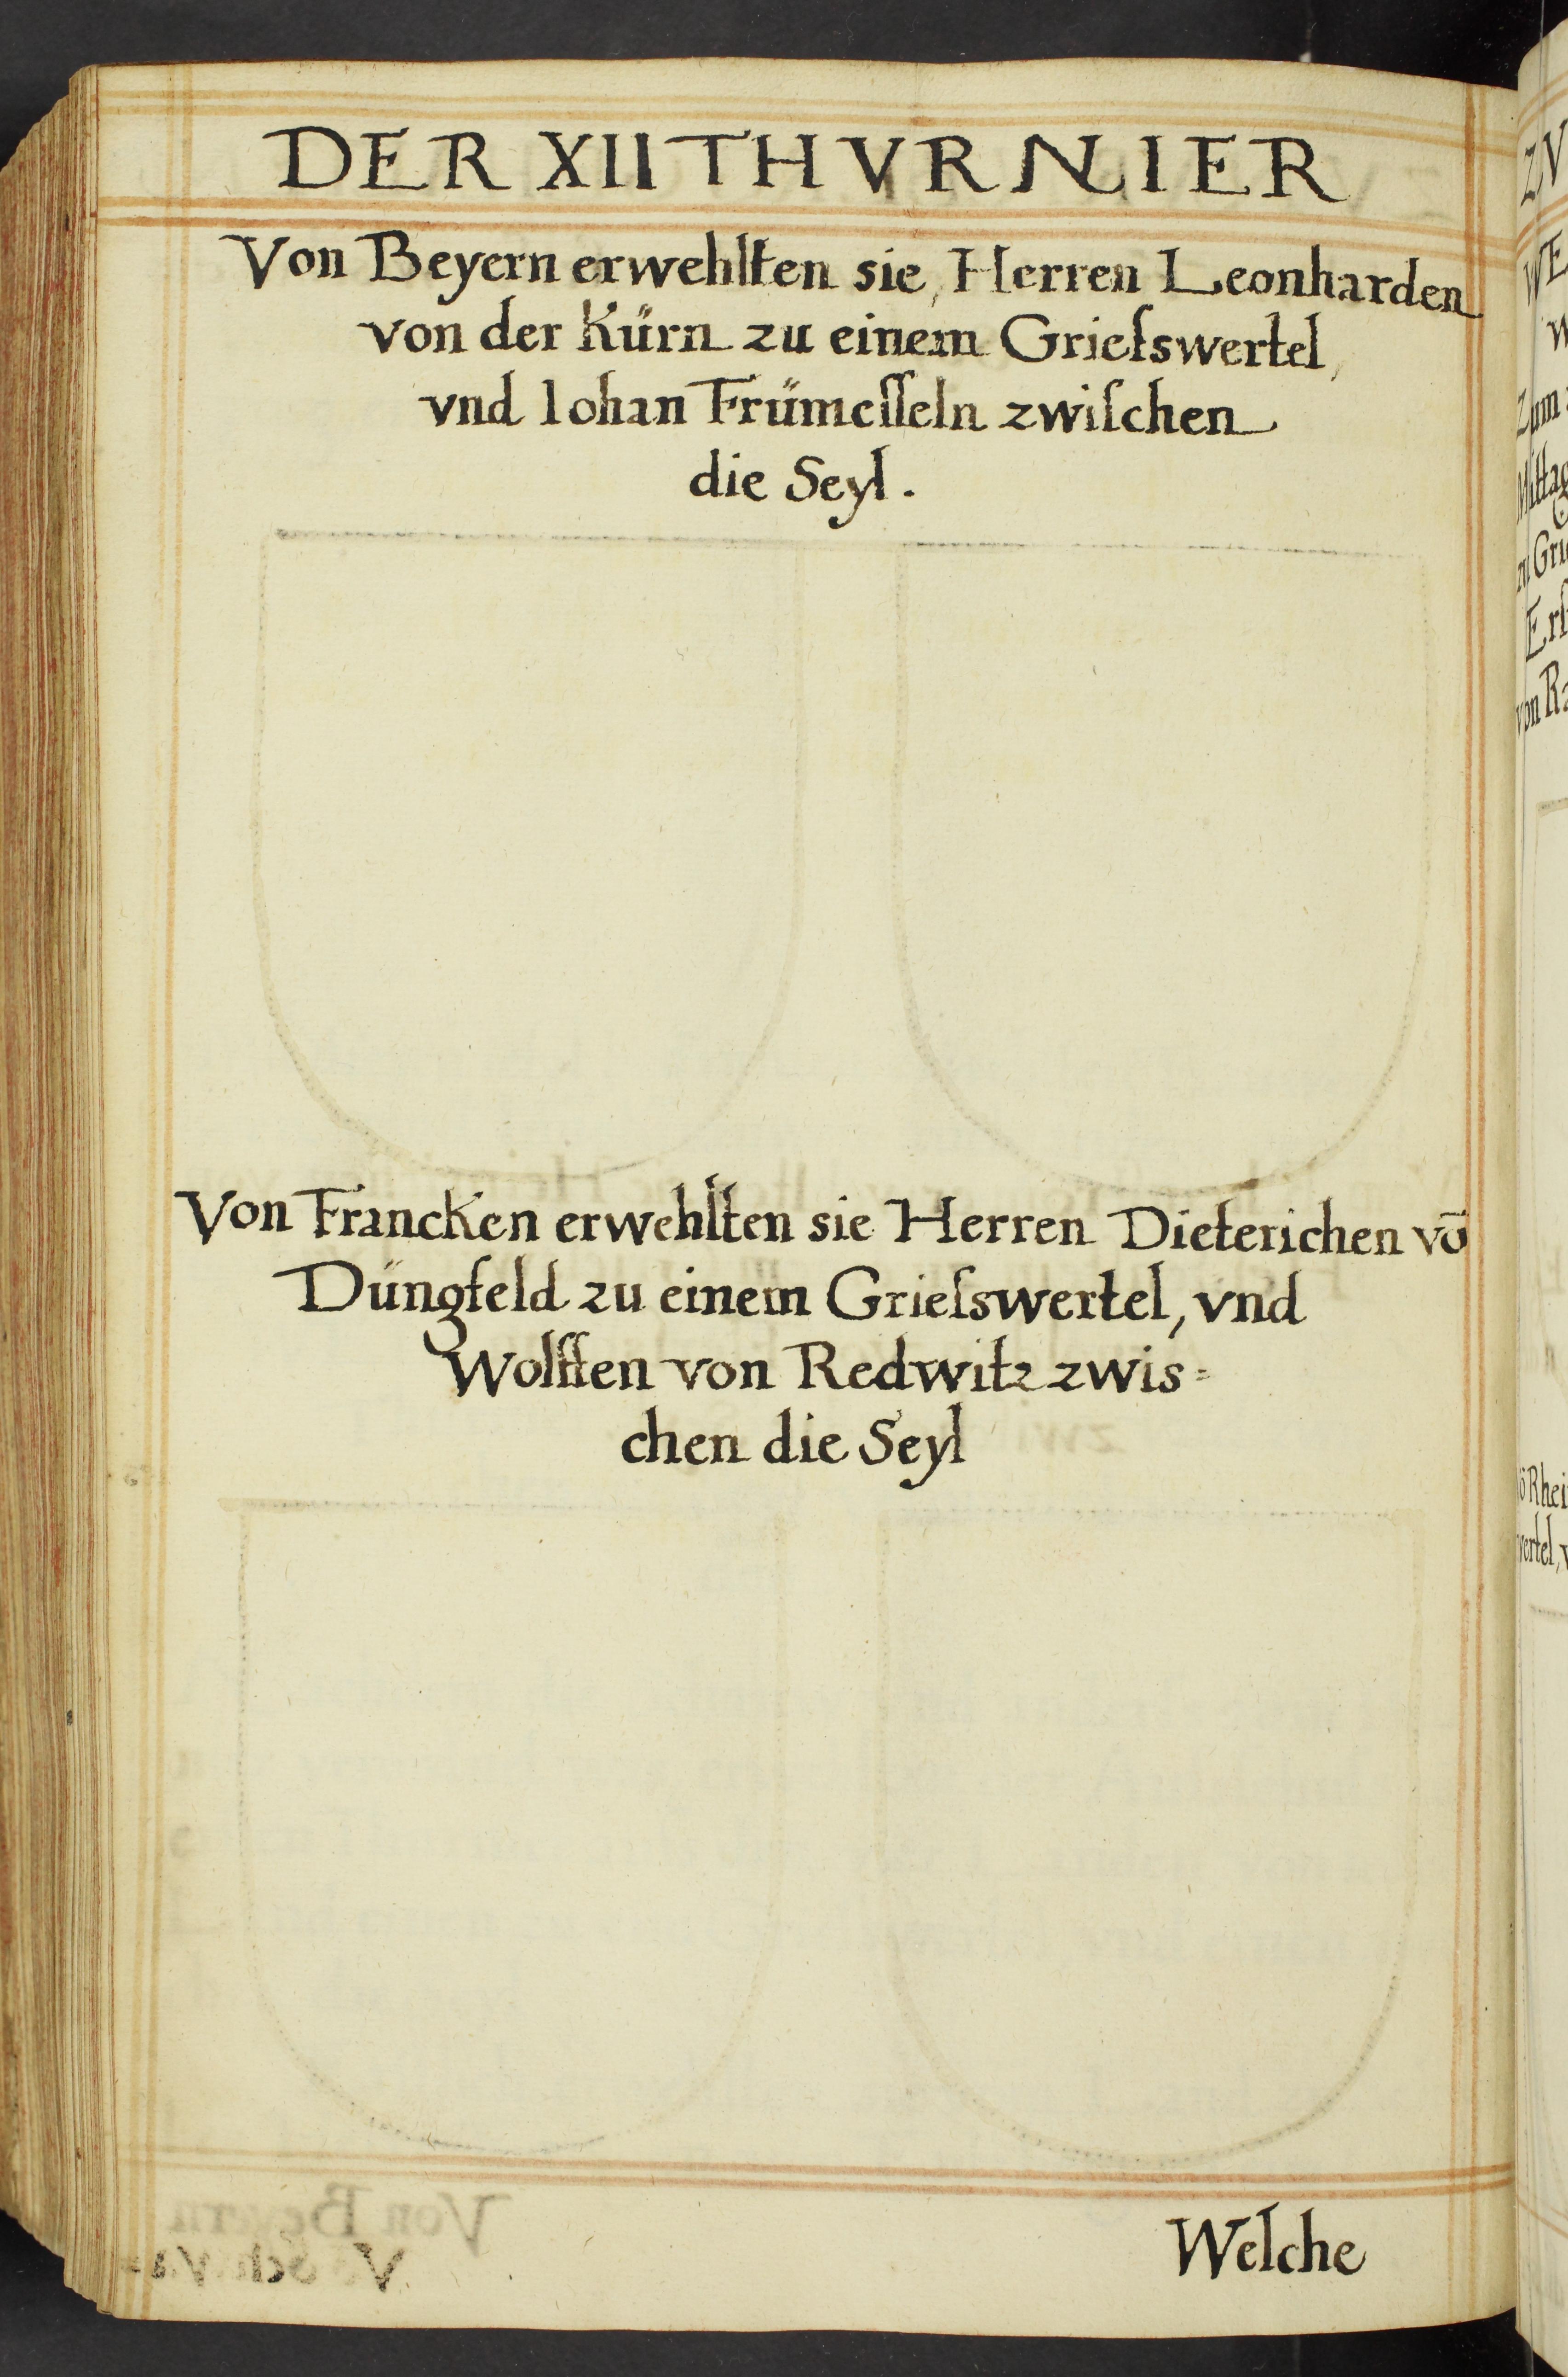 DER XII THVRNIER
Von Beyern erwehlten sie, Herren Leonharden
von der Kürn zu einem Grieſswertel,
vnd Iohan Frümeſſeln zwiſchen
die Seyl.
Von Francken erwehlten sie Herren Dieterichen vō
Düngfeld zu einem Grieſswertel, vnd
Wolffen von Redwitz zwis=
chen die Seyl
Welche